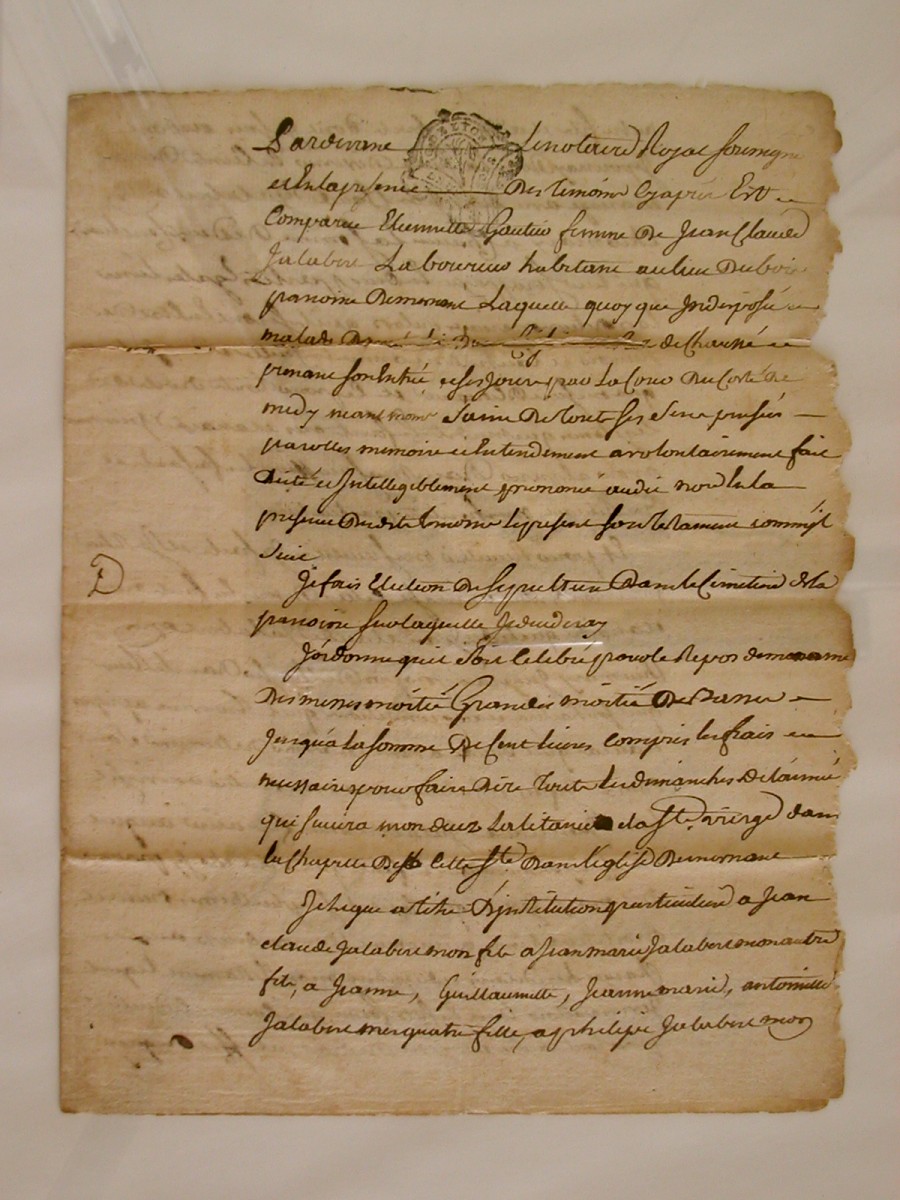 Pardevant Le notaire Royal soussigné
et En la presence Des temoins Cyaprès Est
Comparüe Etiennette Gautier femme De Jean Claude
Jalabert Laboureur habitant au lieu Du bois
paroisse De mornant Laquelle quoy que Indisposée
malade De
prenant son Entrée et ses Jours par La Cour Du Costé De
midy neant moins Saine De touts ses Sens
parolles memoire et Entendement a volontairement fait
Dicté et Intellegiblement prononcé audit no.re En la
presence Desdits temoins Le present son testament comme
Suit
D
Je fais Election De Sepulture Dans le Cimetiere de la
paroisse Sur laquelle Je decederay
J'ordonne quil Soit Celebré pour le Repos de mon ame
Des messes moitié Grandes moitié De Basses
Jusqua La somme De Cent livres Compris les frais
necessaires pour faire Dire touts les dimanches De l'année
qui suivra mon decez La litanie de la Ste vierge dans
la Chapelle De Cette Ste Dans l'Eglise De mornant
Je legue a titre D'institution particuliere a Jean
claude Jalabert mon fils a Jean marie Jalabert mon autre
fils, a Jeanne, Guillaumette, Jeanne marie, antoinette
Jalabert mes quatre filles, a philipe Jalabert mon